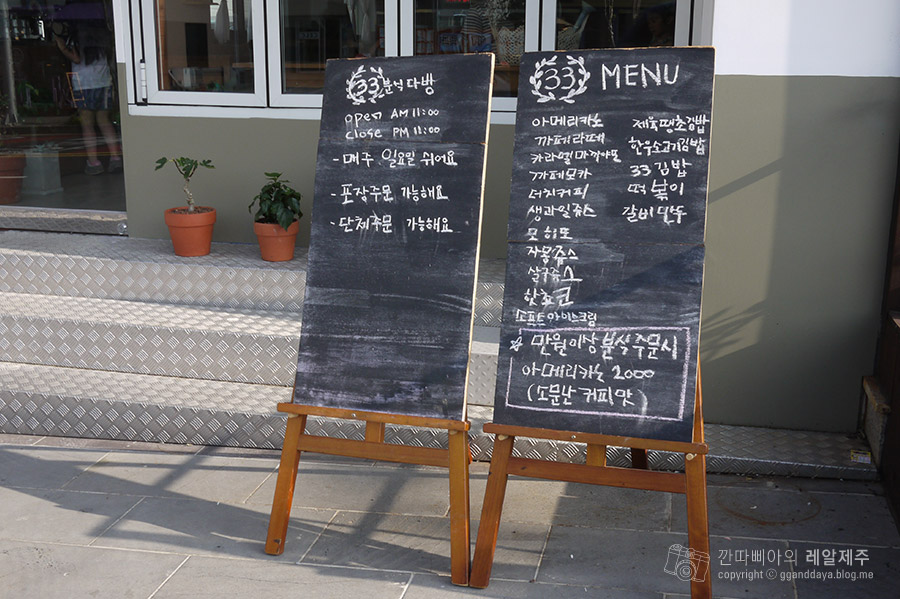 33 분식다방
open AM 11:00
close PM 11:00
- 매주 일요일 쉬어요
- 포장주문 가능해요
- 단체주문 가능해요
33 MENU
아메리카노
까페라떼
카라멜마끼야또
까페모카
더치커피
생과일쥬스
모히또
자몽쥬스
살구쥬스
핫초코
소프트아이스크림
제육땡초김밥
한우소고기김밥
33김밥
떡볶이
갈비만두
* 만원이상 분식주문시
아메리카노 2000
(소문난 커피맛)
깐따삐아의 레알제주
copyright ⓒ gganddaya.blog.me